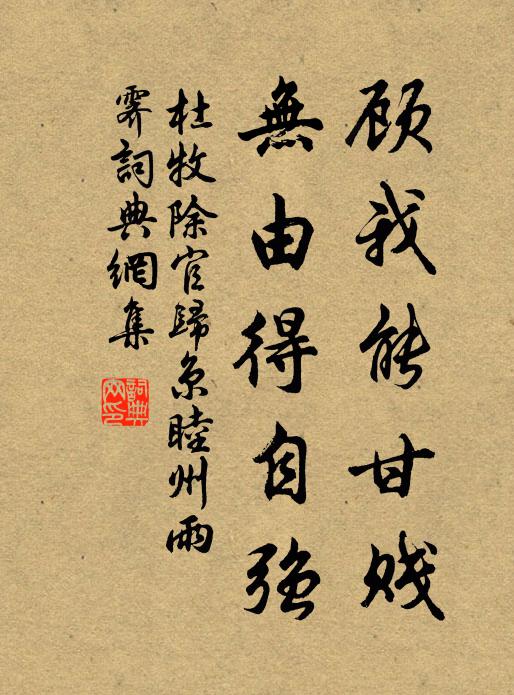 顾我能甘贱
無由得自强
杜牧除官歸京睦州雨
霽詞典網集
詞典
網印